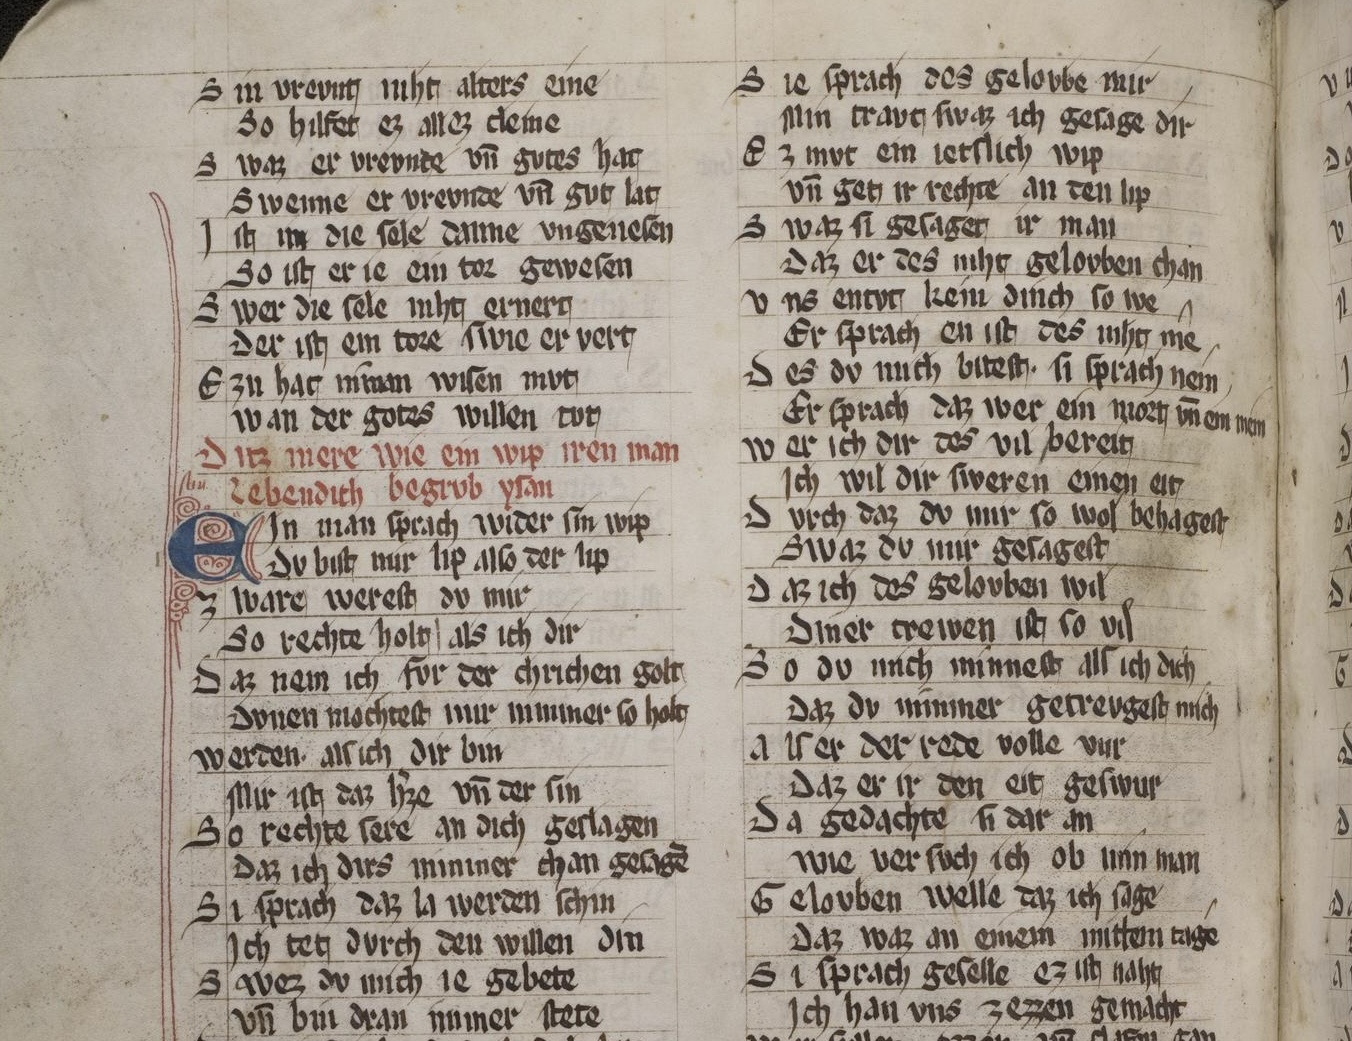 Sin vrevnt niht alters eine
So hilfet ez allez cleine
Swaz er vrevnde vn̄ gvtes hat
Swenne er vrevnde vn̄ gvt lat
Ist im die sele danne vngenesen
So ist er ie ein tor gewesen
Swer die sele niht ernert
Der ist ein tore swie er vert
Ezn hat niman wisen mvt
Wan der gotes willen tvt
Ditz mere wie ein wip iren man
Lebendich begrvb
EIn man sprach wider sin wip
Dv bist mir lip also der lip
Zware werest dv mir
So rechte holt als ich dir
Daz nem ich fvr der chrichen golt
Dvnen mochtest mir nimmer so holt
werden· als ich dir bin
Mir ist daz hʼze vn̄ der sin
So rechte sere an dich geslagen
Daz ich dirs nimmer chan gesagē
Si sprach daz la werden schin
Ich tet dvrch den willen din
Swez dv mich ie gebete
vn̄ bin dran immer stete
Sie sprach des gelovbe mir
Min travt swaz ich gesage dir
Ez mvt ein ietslich wip
vn̄ get ir rechte an den lip
Swaz si gesaget ir man
Daz er des niht gelovben chan
Vns entvt kein dinch so we
Er sprach en ist des niht me
Des dv mich bitest· si sprach nein
Er sprach daz wer ein mort vn̄ ein mein
Wer ich dir des vil bereit
Ich wil dir sweren einen eit
Dvrch daz dv mir so wol behagest
Swaz dv mir gesagest
Daz ich des gelovben wil
Diner trewen ist so vil
So dv mich minnest als ich dich
Daz dv nimmer getrevgest mich
Als er der rede volle vur
Daz er ir den eit geswur
Da gedachte si dar an
Wie versvch ich ob min man
Gelovben welle daz ich sage
Daz waz an einem mittem tage
Si sprach geselle ez ist naht
Ich han vns zezzen gemacht